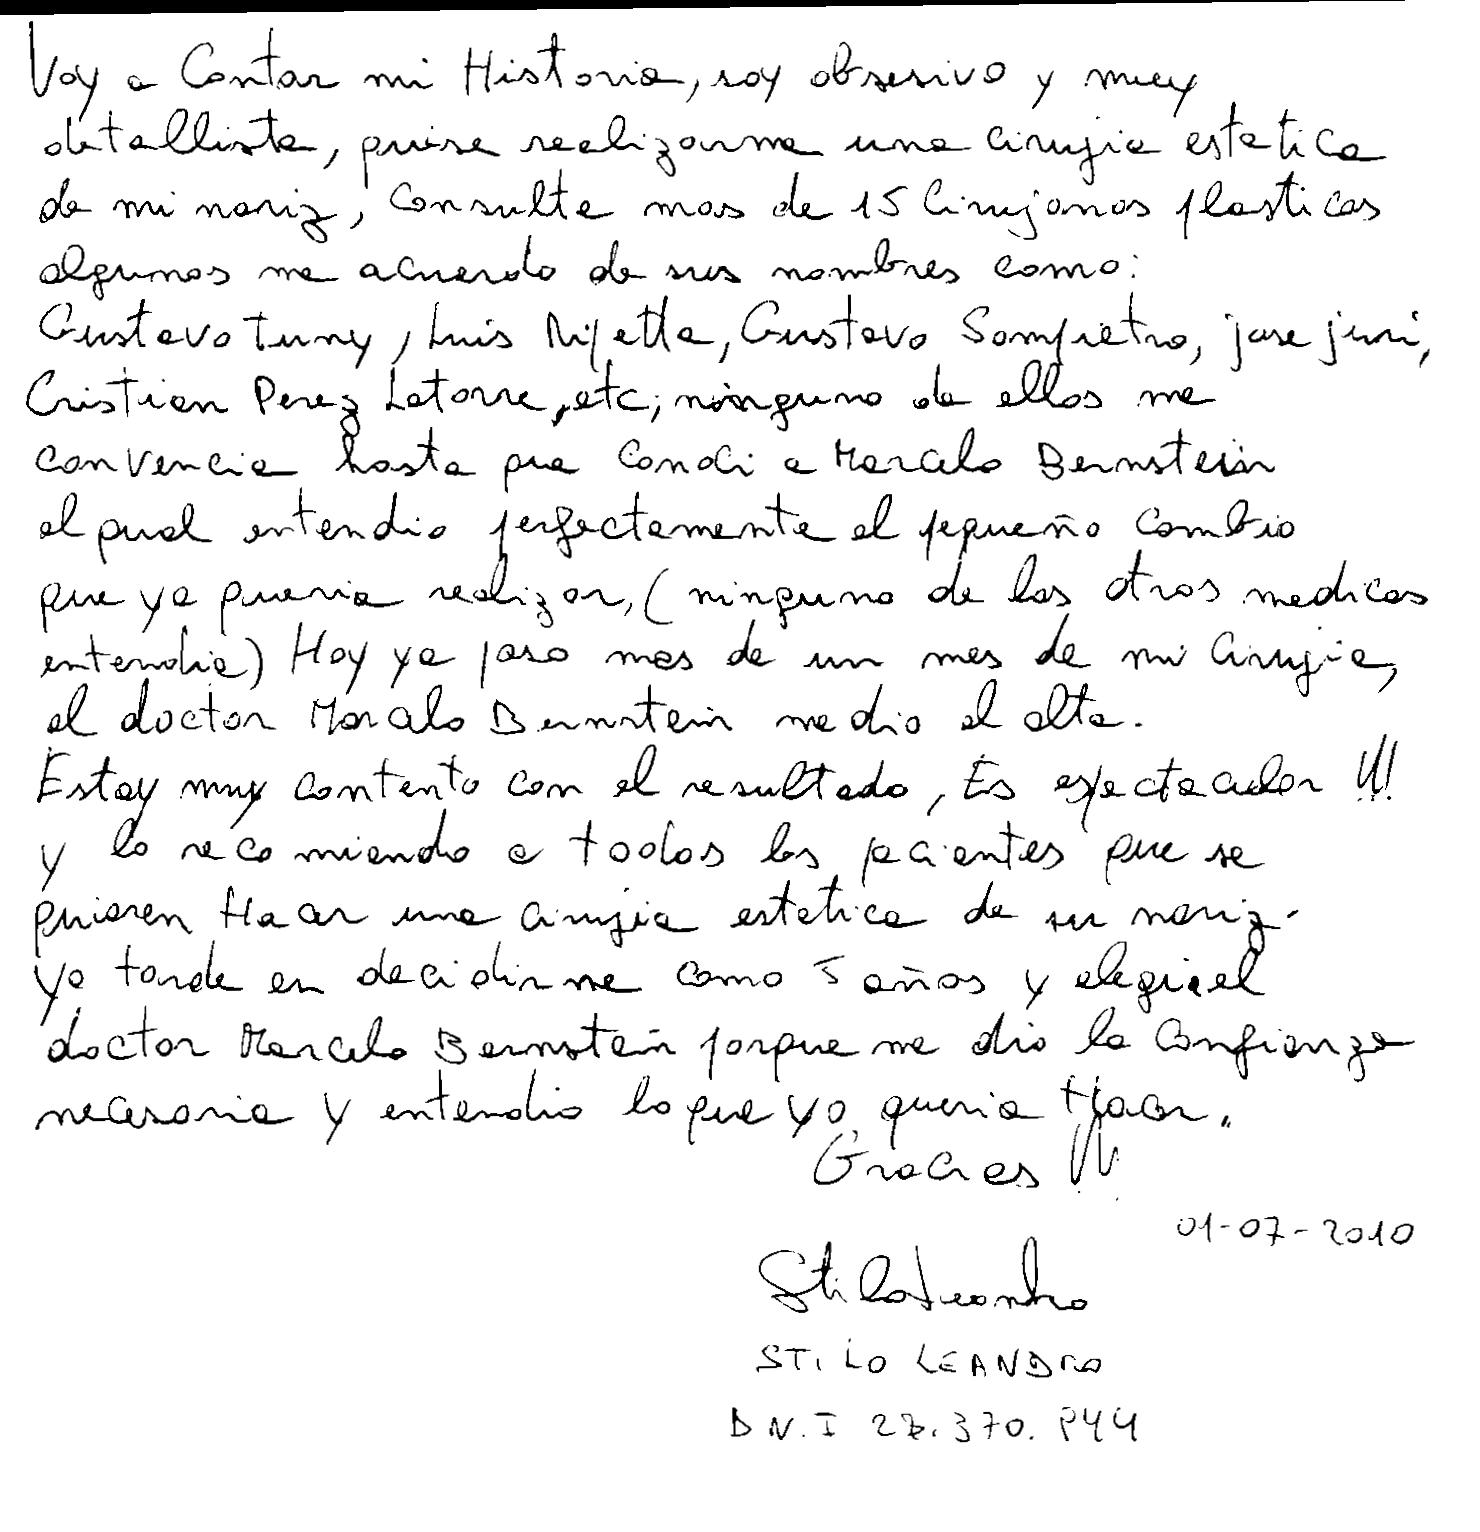 Voy a Contar mi Historia, soy obsesivo y muy
detallista, quise realizarme una cirujia estetica
de mi nariz, Consulte mas de 15 Cirujanos plasticos
algunos me acuerdo de sus nombres como:
Gustavo Tuny, Luis Ripetta, Gustavo Sampietro, jose juri,
Cristian Perez Latorre, etc; ninguno de ellos me
convencia hasta que Conoci a Marcelo Bernstein
el qual entendio perfectamente el pequeño Cambio
que yo queria realizar, (ninguno de los otros medicos
entendia) Hoy ya paso mas de un mes de mi Cirujia,
el doctor Marcelo Bernstein me dio el alta.
Estoy muy contento con el resultado, Es espectacular !!!
y lo recomiendo a todos los pacientes que se
quieren Hacer una cirujia estetica de su nariz.
Yo tarde en decidirme como 5 años y elegi el
doctor Marcelo Bernstein porque me dio la Confianza
necesaria y entendio lo que yo queria Hacer.
Gracias !!!
01-07-2010
Stilo Leandro
STILO LEANDRO
D N. I 370.